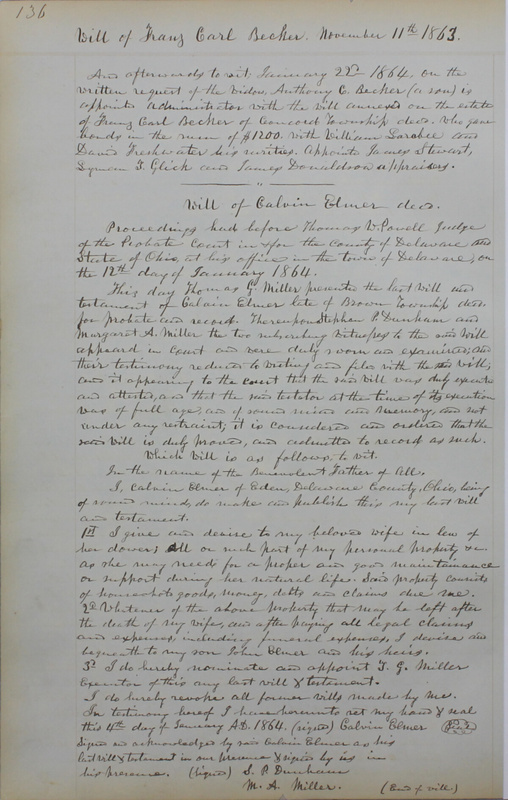 136
Will of Franz Carl Becker. November 11th 1863.
And afterwards to wit, January 22d 1864, on the
written request of the widow, Anthony C. Becker (a son) is
appointed administrator with the will annexed on the estate
of Franz Carl Becker of Concord Township decd. who gave
bonds in the sum of $1200. with William Larabee and
David Freshwater his sureties. Appoints James Stewart,
Lyman T. Glick and James Donaldson appraisers.
Will of Calvin Elmer decd.
Proceedings had before Thomas W. Powell Judge
of the Probate Court in & for the County of Delaware and
State of Ohio, at his office in the town of Delaware, on
the 12th day of January 1864.
This day Thomas G. Miller presented the last will and
testament of Calvin Elmer late of Brown Township decd.
for probate and record. Thereupon Stephen P. Dunham and
Margaret A. Miller the two subscribing witnesses to the said Will
appeared in Court and were duly sworn and examined, and
their testimony reduced to writing and filed with the said will,
and it appearing to the court that the said will was duly executed
and attested, and that the said testator at the time of its execution
was of full age, and of sound mind and memory, and not
under any restraint; it is considered and ordered that the
said Will is duly proved, and admitted to record as such.
Which Will is as follows, to wit.
In the name of the Benevolent Father of All.
I, Calvin Elmer of Eden, Delaware County, Ohio, being
of sound mind, do make and publish this my last will
and testament.
1st I give and devise to my beloved wife in lieu of
her dower; All or such part of my personal property &c.
as she may need for a proper and good maintainance
or support during her natural life. Said property consists
of household goods, money, debts and claims due me.
2d Whatever of the above property that may be left after
the death of my wife, and after paying all legal claims
and expenses including funeral expenses, I devise and
bequeath to my son John Elmer and his heirs.
3d I do hereby nominate and appoint T. G. Miller
Executor of this my last will & testament.
I do hereby revoke all former wills made by me.
In testimony hereof I have hereunto set my hand & seal
this 4th day of January A.D. 1864. (signed) Calvin Elmer
Signed and acknowledged by said Calvin Elmer as his
last will & testament in our presence & signed by us in
his presence. (Signed) S. P. Dunham
M. A. Miller. (End of will)